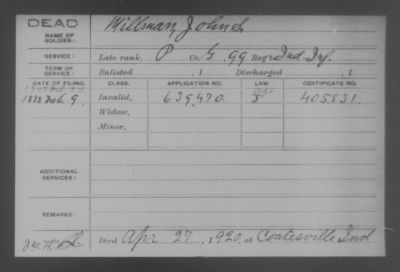 DEAD
NAME OF SOLDIER: Willman, John
SERVICE: Late rank, P Co. G, 99 Reg't Ind Inf.
TERM OF SERVICE: Enlisted , 1 Discharged , 1
DATE OF FILING. CLASS. APPLICATION NO. LAW. CERTIFICATE NO.
Feb. 9, Invalid, 639,470 J 405831.
Widow,
Minor,
ADDITIONAL SERVICES:
REMARKS:
Died Apr 27, 1920, at Coatesville Ind